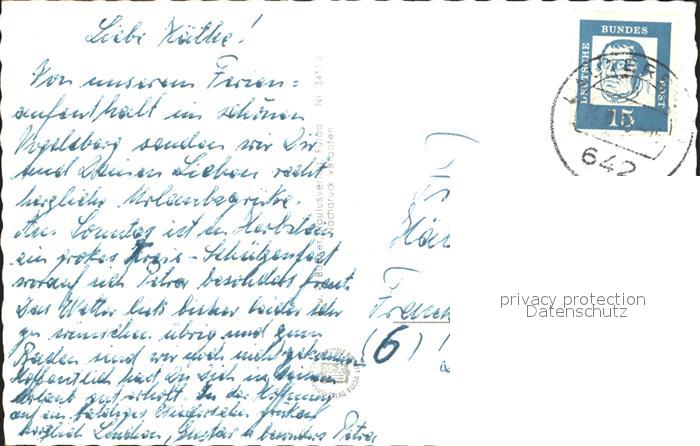 Liebe Käthe!
Von unserem Ferien=
aufenthalt im schönen
Vogelsberg senden wir Dir
und Deinen Lieben recht
herzliche Urlaubsgrüße.
Am Sonntag ist in Herbstein
ein großes Kreis-Schützenfest
worauf sich Petra besonders freut.
Das Wetter ließ bisher leider sehr
zu wünschen übrig und zum
Baden sind wir noch nicht gekommen
Hoffentlich hast Du Dich in Deinem
Urlaub gut erholt. In der Hoffnung
auf ein baldiges Wiedersehen grüßen
herzlich Lenchen, Gustav u. besonders Petra
Nr. 5411
Nachdruck verboten
DEUTSCHE
BUNDES
POST
15
642
Frank
(6)
privacy protection
Datenschutz